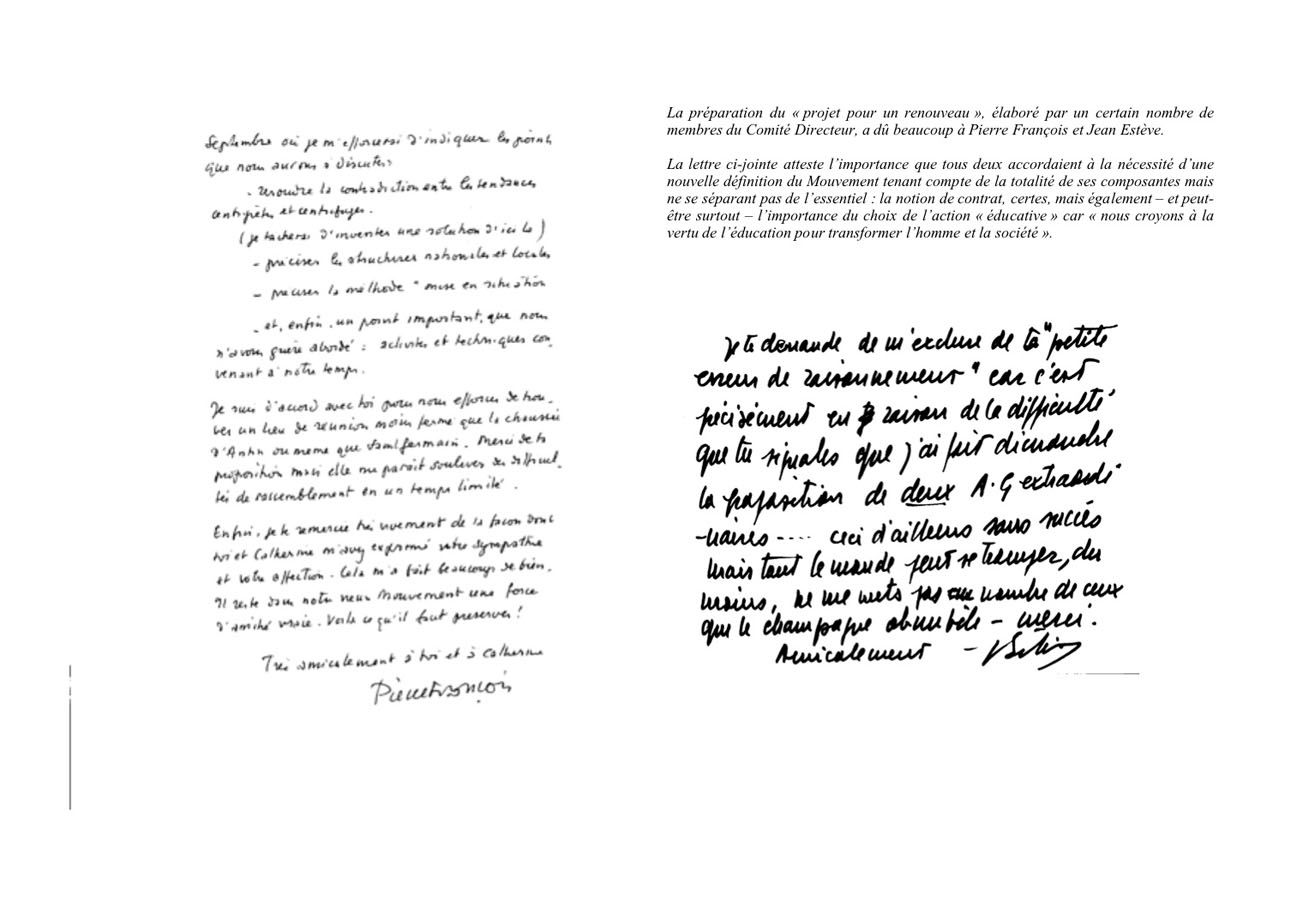 Septembre où je m'efforcerai d'indiquer les points
que nous aurons à discuter
- resoudre la contradiction entre les tendances
centripètes et centrifuges.
(je tacherai d'inventer une solution d'ici là)
- préciser les structures nationales et locales
- preciser la méthode " mise en situation
- et, enfin, un point important, que nous
n'avons guère abordé : activités et techniques con_
venant à notre temps.
Je suis d'accord avec toi pour nous efforcer de trou_
ver un lieu de reunion moins fermé que la chaussée
d'Antin ou meme que Saint Germain. Merci de ta
proposition mais elle me parait soulever des difficul_
tés de rassemblement en un temps limité.
Enfin, je te remercie très vivement de la façon dont
toi et Catherine m'avez exprimé votre sympathie
et votre affection. Cela m'a fait beaucoup de bien.
Il reste dans notre vieux Mouvement une force
d'amitié vraie. Voila ce qu'il faut preserver !
Très amicalement à toi et à Catherine
Pierre François
La préparation du « projet pour un renouveau », élaboré par un certain nombre de
membres du Comité Directeur, a dû beaucoup à Pierre François et Jean Estève.
La lettre ci-jointe atteste l'importance que tous deux accordaient à la nécessité d'une
nouvelle définition du Mouvement tenant compte de la totalité de ses composantes mais
ne se séparant pas de l'essentiel : la notion de contrat, certes, mais également – et peut-
être surtout – l'importance du choix de l'action « éducative » car « nous croyons à la
vertu de l'éducation pour transformer l'homme et la société ».
Je te demande de m'exclure de ta "petite
erreur de raisonnement" car c'est
précisément en raison de la difficulté
que tu signales que j'ai fait dimanche
la proposition de deux A.G extraordi
-naires ---- ceci d'ailleurs sans succès
Mais tout le monde peut se tromper, du
moins, ne me mets pas au nombre de ceux
que le champagne obnubile - merci.
Amicalement -